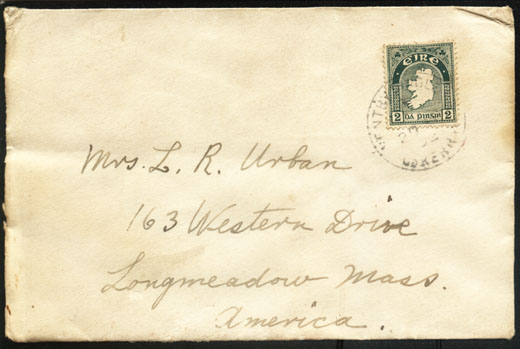 EIRE
2 dá pinġin 2
Mrs. L. R. Urban
163 Western Drive
Longmeadow Mass.
America.